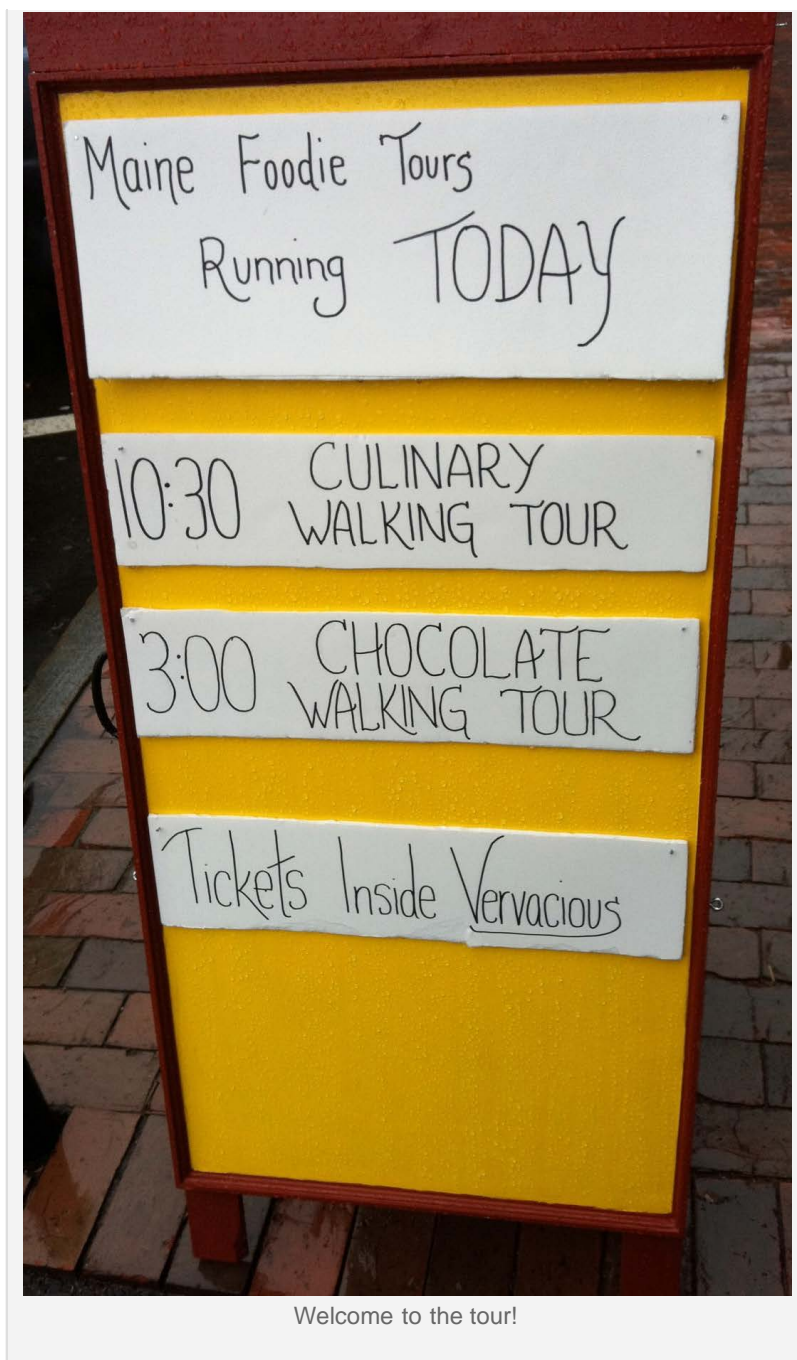 Maine Foodie Tours
Running TODAY
10:30 CULINARY
WALKING TOUR
3:00 CHOCOLATE
WALKING TOUR
Tickets Inside Vervacious
Welcome to the tour!